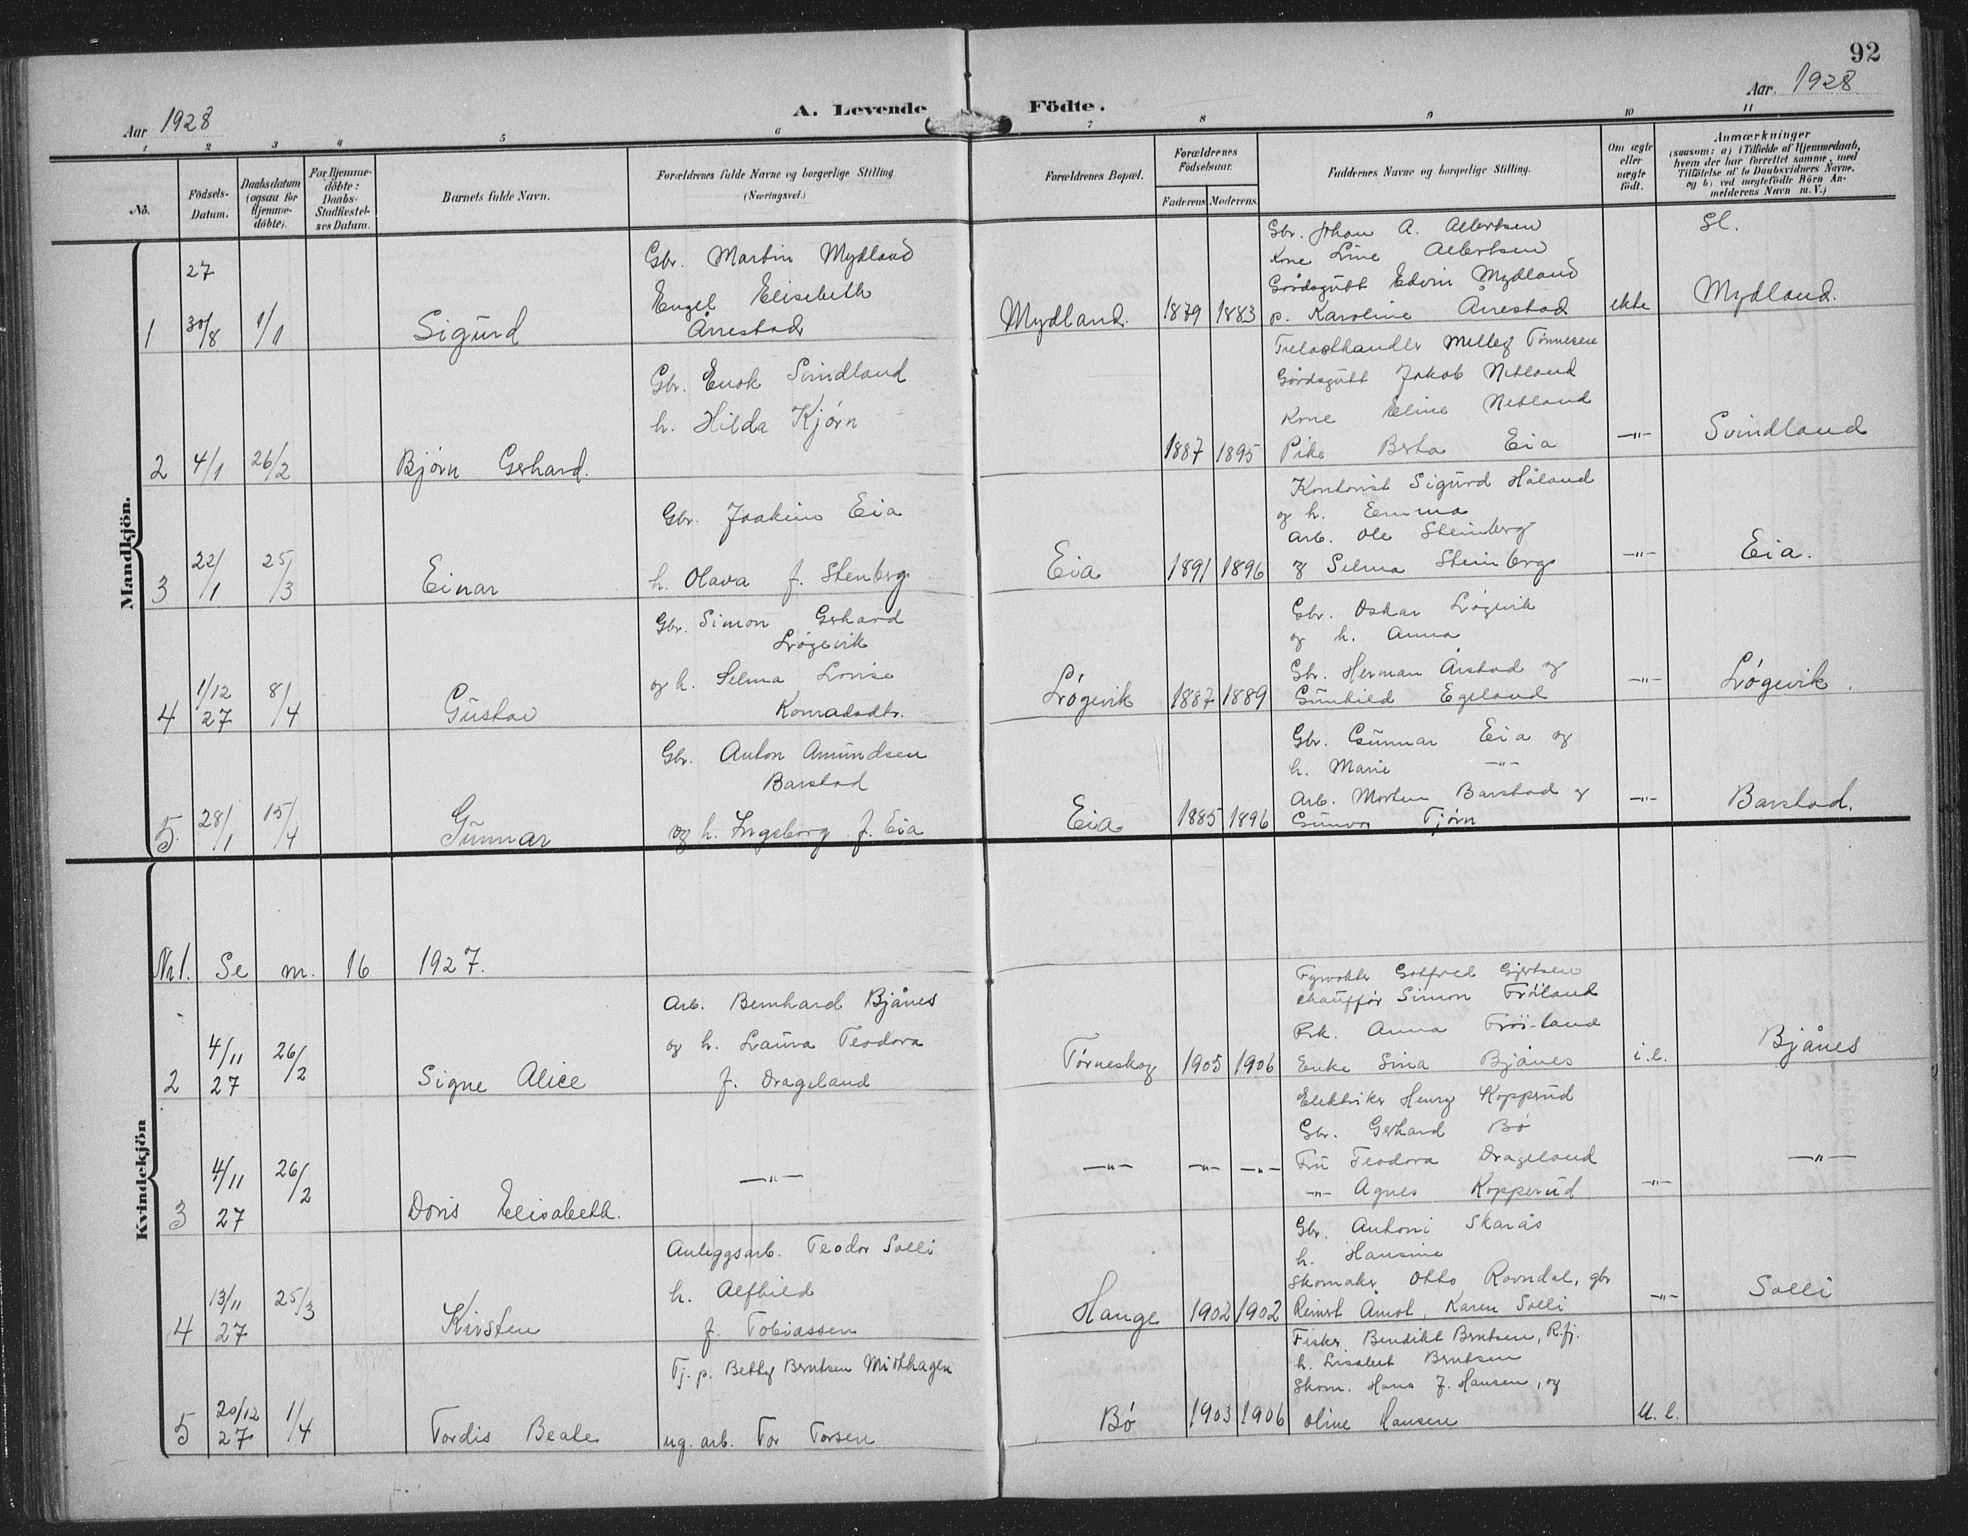 92
Aar 1928
A. Levende Födte.
Aar. 1928
1 2 3 4 5 6 7 8 9 10 11
No.
Födsels-
Datum.
Daabsdatum
(ogsaa for
Hjemme-
döbte).
For Hjemme-
döbte:
Daabs-
Stadfæstel-
ses Datum.
Barnets fulde Navn.
Forældrenes fulde Navne og borgerlige Stilling
(Næringsvei.)
Forældrenes Bopæl.
Forældrenes
Födselsaar.
Faderens Moderens
Faddernes Navne og borgerlige Stilling.
Om ægte
eller
uægte
födt.
Anmærkninger
(saasom: a) i Tilfælde af Hjemmedaab,
hvem der har forrettet samme, med
Tilföielse af to Daabsvidners Navne.
og b) ved uægtefödte Börn An-
melderens Navn m. V.)
Mandkjön.
1
27
30/8
1/1
Sigurd
Gbr. Martin Mydland
Engel Elisebeth
Årrestad
Mydland.
1879 1883
Gbr. Johan A. Albertsen
Kone Line Albertsen
Gårdsgutt Edvin Mydland
p. Karoline Årrestad
ekte
Gl.
Mydland.
2
4/1
26/2
Bjørn Gerhard.
Gbr. Enok Svindland
h. Hilda Kjørn
1887 1895
Trelasthandler Mellef Tønnesen
Gårdsgutt Jakob Netland
Kone Eline Netland
Pike Berta Eia
—"—
Svindland
3
22/1
25/3
Einar
Gbr. Joakim Eia
h. Olava f. Stenberg
Eia
1891 1896
Kontorist Sigurd Håland
og h. Emma
Arb. Ole Steinberg
og Selma Steinberg
—"—
Eia.
4
1/12
27
8/4
Gustav
Gbr. Simon Gerhard
Løgevik
og h. Selma Lovise
Konradsdtr.
Løgevik
1887 1889
Gbr. Oskar Løgevik
og h. Anna
Gbr. Herman Årstad og
Gunhild Egeland
—"—
Løgevik.
5.
28/1
15/4
Gunnar
Gbr. Anton Amundsen
Barstad
og h. Ingeborg f. Eia
Eia
1885 1896
Gbr. Gunnar Eia og
h. Marie —"—
Arb. Morten Barstad og
Gunvor Tjørn
—"—
Barstad.
Kvindekjön
Nr 1. Se m. 16 1927.
2
4/11
27
26/2
Signe Alice
Arb. Bernhard Bjånes
og h. Laura Teodora
f. Drageland
Tørneskog
1905 1906
Fyrvokter Gotfred Gjertsen
Chauffør Simon Frøiland
Prk. Anna Frøi-land
Enke Sina Bjånes
i.e.
Bjånes
3
4/11
27
26/2
Doris Elisabeth.
—"—
—"—
—"— —"—
Elektriker Henry Kopperud
Gbr. Gerhard Bö
Fru Teodora Drageland
—"— Agnes Kopperud
—"—
—"—
4
13/11
27
25/3
Kirsten
Anleggsarb. Teodor Solli
h. Alfhild
f. Tobiassen
Hauge
1902 1902
Gbr. Antoni Skarås
h. Hansine
Skomaker Otto Ravndal, gbr
Reinert Åmot, Karen Solli
—"—
Solli
5
20/12
27
1/4
Tordis Beate
Tj. p. Betty Berntsen Midthagen
ug. arb. Tor Torsen
Bö
1903 1906
Fisker Bendikt Berntsen, R.fj.
h. Lisabet Berntsen
Skom. Hans J. Hansen, og
Oline Hansen
U. e.